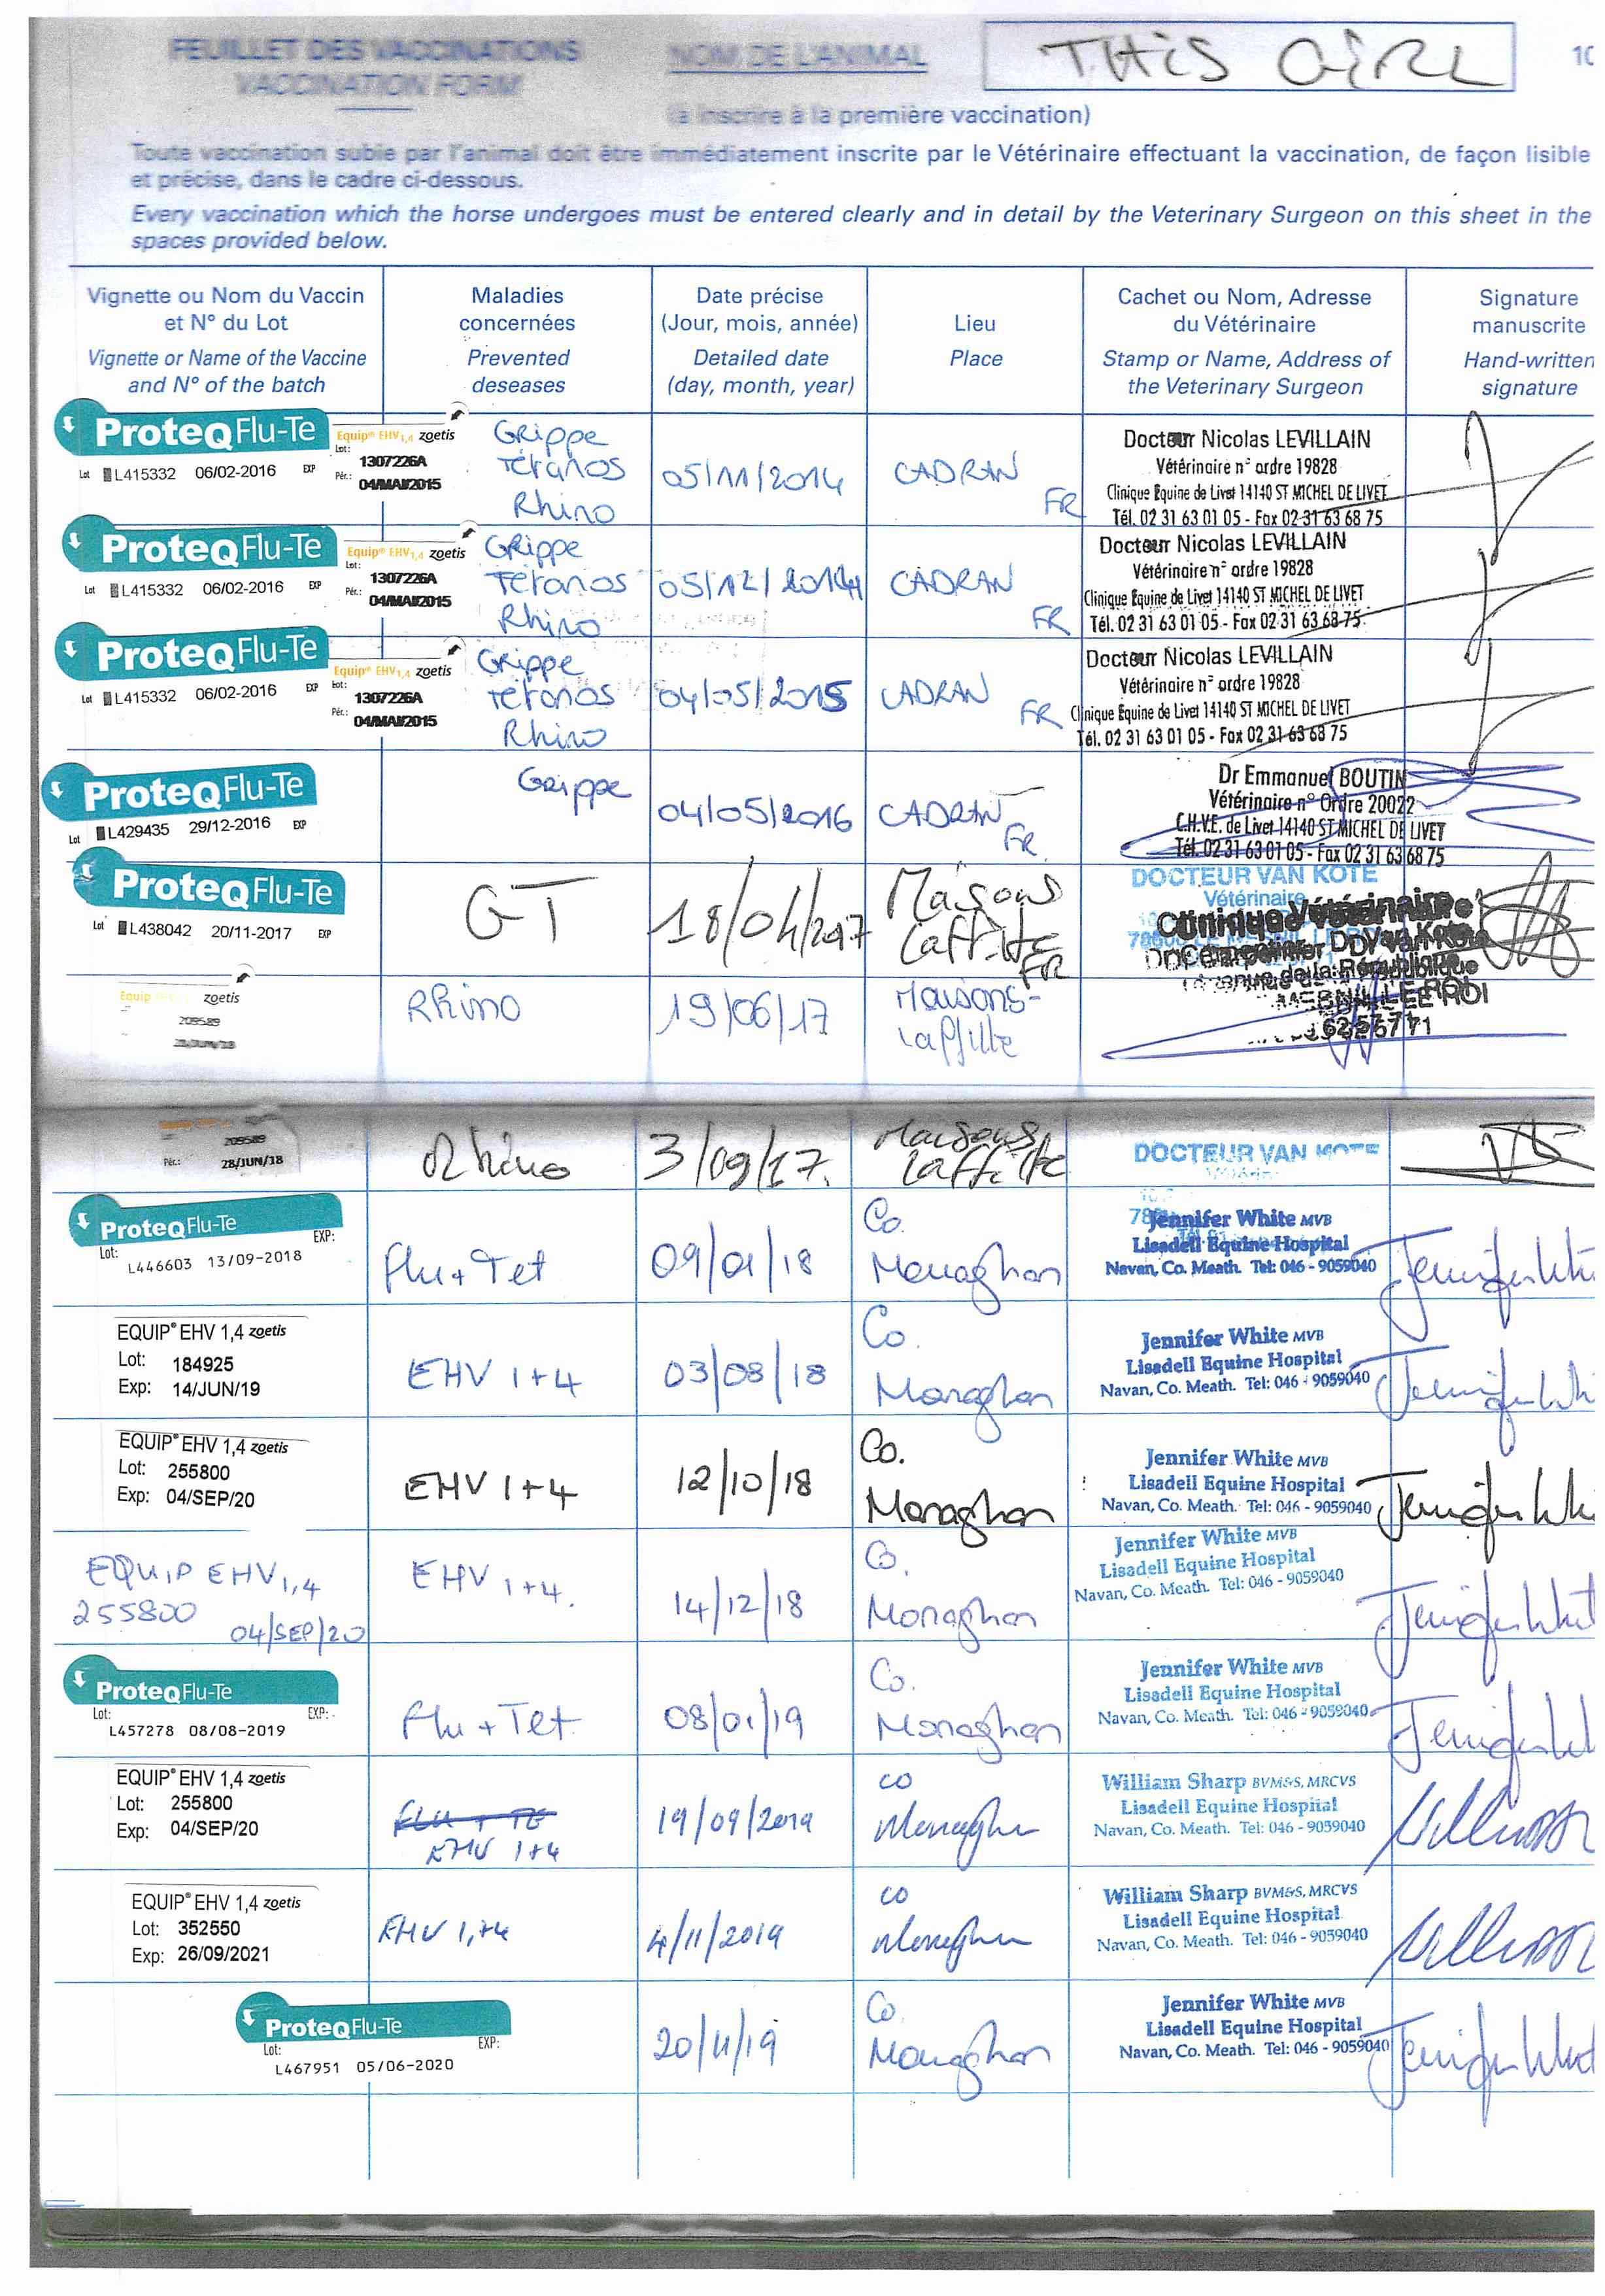 FEUILLET DES VACCINATIONS
VACCINATION FORM
NOM DE L'ANIMAL
THIS GIRL
10
(à inscrire à la première vaccination)
Toute vaccination subie par l'animal doit être immédiatement inscrite par le Vétérinaire effectuant la vaccination, de façon lisible
et précise, dans le cadre ci-dessous.
Every vaccination which the horse undergoes must be entered clearly and in detail by the Veterinary Surgeon on this sheet in the
spaces provided below.
Vignette ou Nom du Vaccin
et N° du Lot
Vignette or Name of the Vaccine
and N° of the batch
Maladies
concernées
Prevented
deseases
Date précise
(Jour, mois, année)
Detailed date
(day, month, year)
Lieu
Place
Cachet ou Nom, Adresse
du Vétérinaire
Stamp or Name, Address of
the Veterinary Surgeon
Signature
manuscrite
Hand-written
signature
ProteqFlu-Te
Lot L415332 06/02-2016 EXP
Equip® EHV1,4 zoetis
Lot: 1307226A
Pér.: 04/MAI/2015
Grippe
Tétanos
Rhino
05/11/2014
CADRAN
FR
Docteur Nicolas LEVILLAIN
Vétérinaire n° ordre 19828
Clinique Equine de Livet 14140 ST MICHEL DE LIVET
Tél. 02 31 63 01 05 - Fax 02 31 63 68 75
ProteqFlu-Te
Lot L415332 06/02-2016 EXP
Equip® EHV1,4 zoetis
Lot: 1307226A
Pér.: 04/MAI/2015
Grippe
Tétanos
Rhino
05/12/2014
CADRAN
FR
Docteur Nicolas LEVILLAIN
Vétérinaire n° ordre 19828
Clinique Equine de Livet 14140 ST MICHEL DE LIVET
Tél. 02 31 63 01 05 - Fax 02 31 63 68 75
ProteqFlu-Te
Lot L415332 06/02-2016 EXP
Equip® EHV1,4 zoetis
Lot: 1307226A
Pér.: 04/MAI/2015
Grippe
Tétanos
Rhino
04/05/2015
CADRAN
FR
Docteur Nicolas LEVILLAIN
Vétérinaire n° ordre 19828
Clinique Equine de Livet 14140 ST MICHEL DE LIVET
Tél. 02 31 63 01 05 - Fax 02 31 63 68 75
ProteqFlu-Te
Lot L429435 29/12-2016 EXP
Grippe
04/05/2016
CADRAN
FR
Dr Emmanuel BOUTIN
Vétérinaire n° Ordre 20022
C.H.V.E. de Livet 14140 ST MICHEL DE LIVET
Tél. 02 31 63 01 05 - Fax 02 31 63 68 75
ProteqFlu-Te
Lot L438042 20/11-2017 EXP
GT
18/04/2017
Maisons
Laffitte
FR
DOCTEUR VAN KOTE
Vétérinaire
Clinique Vétérinaire
Equip zoetis
209589
Rhino
19/06/17
Maisons-
Laffitte
209589
Pér.: 28/JUN/18
Rhino
3/09/17.
Maisons
Laffitte
DOCTEUR VAN KOTE
ProteqFlu-Te
Lot: EXP:
L446603 13/09-2018
Flu + Tet
09/01/18
Co.
Monaghan
Jennifer White MVB
Lisadell Equine Hospital
Navan, Co. Meath. Tel: 046 - 9059040
EQUIP® EHV 1,4 zoetis
Lot: 184925
Exp: 14/JUN/19
EHV 1+4
03/08/18
Co.
Monaghan
Jennifer White MVB
Lisadell Equine Hospital
Navan, Co. Meath. Tel: 046 - 9059040
EQUIP® EHV 1,4 zoetis
Lot: 255800
Exp: 04/SEP/20
EHV 1+4
12/10/18
Co.
Monaghan
Jennifer White MVB
Lisadell Equine Hospital
Navan, Co. Meath. Tel: 046 - 9059040
EQUIP EHV1,4
255800
04/SEP/20
EHV 1+4.
14/12/18
Co.
Monaghan
Jennifer White MVB
Lisadell Equine Hospital
Navan, Co. Meath. Tel: 046 - 9059040
ProteqFlu-Te
Lot: EXP:
L457278 08/08-2019
Flu + Tet
08/01/19
Co.
Monaghan
Jennifer White MVB
Lisadell Equine Hospital
Navan, Co. Meath. Tel: 046 - 9059040
EQUIP® EHV 1,4 zoetis
Lot: 255800
Exp: 04/SEP/20
FLU + TE
EHV 1+4
19/09/2019
CO
Monaghan
William Sharp BVM&S, MRCVS
Lisadell Equine Hospital
Navan, Co. Meath. Tel: 046 - 9059040
EQUIP® EHV 1,4 zoetis
Lot: 352550
Exp: 26/09/2021
EHV 1,+4
4/11/2019
CO
Monaghan
William Sharp BVM&S, MRCVS
Lisadell Equine Hospital
Navan, Co. Meath. Tel: 046 - 9059040
ProteqFlu-Te
Lot: EXP:
L467951 05/06-2020
20/11/19
Co.
Monaghan
Jennifer White MVB
Lisadell Equine Hospital
Navan, Co. Meath. Tel: 046 - 9059040